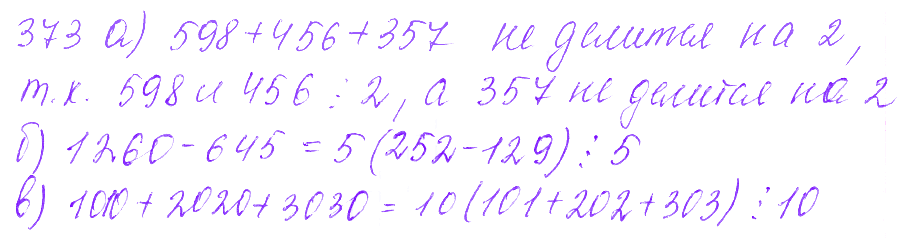 373 а) 598+456+357 не делится на 2,
т.к. 598 и 456 ⋮ 2, а 357 не делится на 2
б) 1260-645 = 5(252-129) ⋮ 5
в) 1010+2020+3030 = 10(101+202+303) ⋮ 10